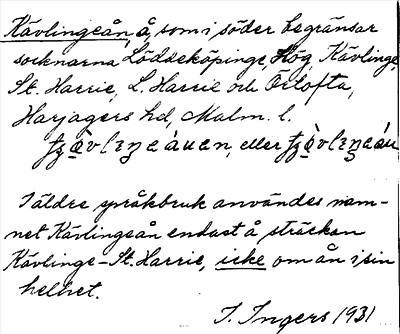 Kävlingeån, å, som i söder begränsar
socknarna Löddeköpinge, Hög, Kävlinge,
St. Harrie, L. Harrie och Örtofta,
Harjagers hd, Malm. l.
eller
I äldre språkbruk användes nam-
net Kävlingeån endast å sträckan
Kävlinge–St. Harrie, icke om ån i sin
helhet.
I. Ingers 1931